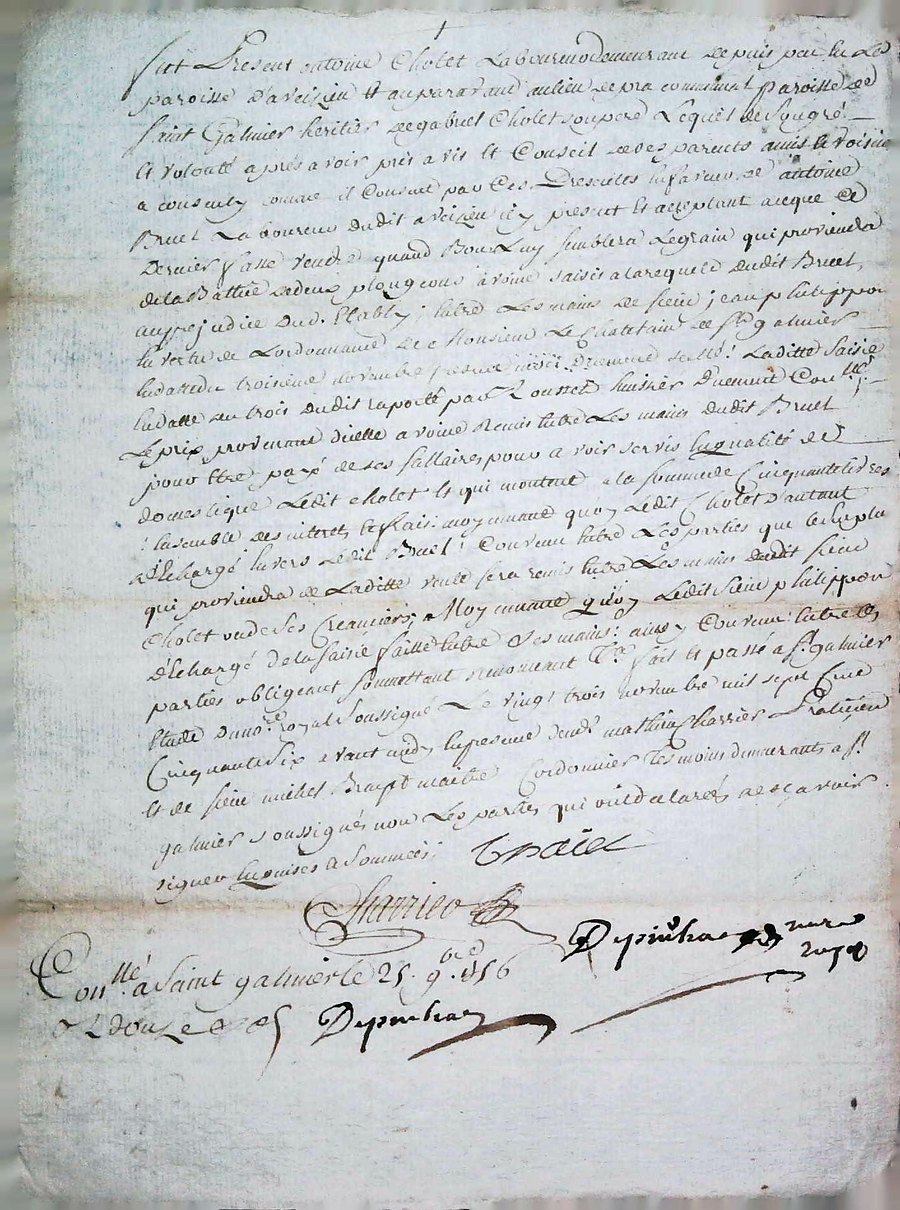 fut Present antoine Cholet Laboureur demeurant depuis peu en La
paroisse d'aveizieu Et auparavant au lieu de pra commun paroisse de
Saint Galmier heritier de gabriel Cholet son pere Lequel de son gré
Et volonté aprés avoir pris avis Et Conseil de ses parents amis Et voisins
a consenty comme il Consent par Ces Presentes en faveur de antoine
Bruel Laboureur dudit aveizieu icy present Et acceptant a ce que Ce
Dernier fasse vendre quand Bon Luy semblera Le grain qui proviendra
de La Battue de deux plongeons avoine saisit a la requete dudit Bruel,
au prejudice dud. Etably; Entre Les mains de sieur jean philippon
En vertu de Lordonnance de Monsieur Le Chatelain de St galmier
En datte du troisième novembre present mois; Duement scellé! Laditte saisie
En datte du trois dudit raporté par Rousset huissier Duement Conllé;
Le prix provenant dicelle avoine Remis Entre Les mains dudit Bruel
pour Etre payé de ses sallaires pour avoir servis En qualité de
domestique Ledit Cholet Et qui montent a la somme de Cinquante livres
! Ensemble des interets Et frais: moyennant quoy Ledit Cholet D'autant
dEchargé Envers Ledit Bruel! Convenu Entre Les parties que Le surplus
qui proviendra de Laditte vente sera remis Entre Les mains dudit sieur
Cholet ou de ses Creanciers; Moyennant quoy Ledit Sieur philippon
dEchargé de la saisie faitte Entre Ses mains: ainsy Convenu Entre Les
parties obligeant soumettant renonceant &a fait Et passé a St galmier
Etude du nore royal soussigné Le vingt trois novembre mil sept Cent
Cinquante Six avant midy En presence de sr mathieu Charrier Praticien
Et de sieur michel Maitre Cordonnier Temoins demeurants a St
galmier soussignés non Les parties qui ont declarées ne sçavoir
signer Enquises Et Sommées:
Charrier
Depinhac nore
royal
Conllé a Saint galmier le 25. 9bre 1756
Depinhac